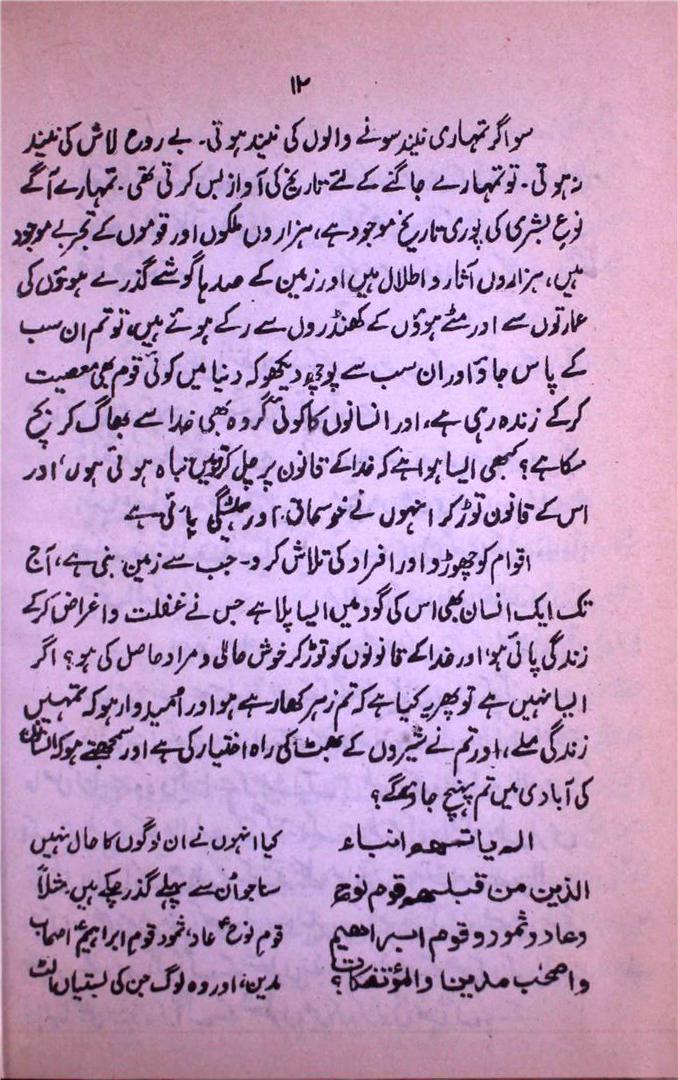 ۱۲
سو اگر تمہاری نیند سونے والوں کی نیند ہوتی۔ بے روح لاش کی نیند
نہ ہوتی۔ تو تمہارے جاگنے کے لئے تاریخ کی آواز بس کرتی تھی۔ تمہارے آگے
نوع بشری کی پوری تاریخ موجود ہے، ہزاروں ملکوں اور قوموں کے تجربے موجود
ہیں، ہزاروں آثار و اطلال ہیں اور زمین کے صدہا گوشے گذرے ہوؤں کی
عمارتوں سے اور مٹے ہوؤں کے کھنڈروں سے رکے ہوئے ہیں، تو تم ان سب
کے پاس جاؤ اور ان سب سے پوچھ دیکھو کہ دنیا میں کوئی قوم بھی معصیت
کرکے زندہ رہی ہے، اور انسانوں کا کوئی گروہ بھی خدا سے بھاگ کر بچ
سکا ہے؟ کبھی ایسا ہوا ہے کہ خدا کے قانون پر چل کر قومیں تباہ ہوئی ہوں، اور
اس کے قانون توڑ کر انہوں نے خوشحالی اور ہمیشگی پائی ہے
اقوام کو چھوڑو اور افراد کی تلاش کرو۔ جب سے زمین بنی ہے، آج
تک ایک انسان بھی اس کی گود میں ایسا پلا ہے جس نے غفلت و اغراض کرکے
زندگی پائی ہو، اور خدا کے قانونوں کو توڑ کر خوش حالی و مراد حاصل کی ہو؟ اگر
ایسا نہیں ہے تو پھر یہ کیا ہے کہ تم زہر کھا رہے ہو اور امیدوار ہو کہ تمہیں
زندگی ملے، اور تم نے شیروں کے بھٹ کی راہ اختیار کی ہے اور سمجھتے ہو کہ انسان
کی آبادی میں تم پہنچ جاؤ گے؟
الم یاتهم انباء کیا انہوں نے ان لوگوں کا حال نہیں
الذین من قبلهم قوم نوح سنا جو اُن سے پہلے گذر چکے ہیں۔ مثلاً
وعاد وثمود وقوم ابراهیم قوم نوحؑ عاد، ثمود قوم ابراہیمؑ اصحاب
واصحٰب مدین والمؤتفکات؟ مدین، اور وہ لوگ جن کی بستیاں الٹ